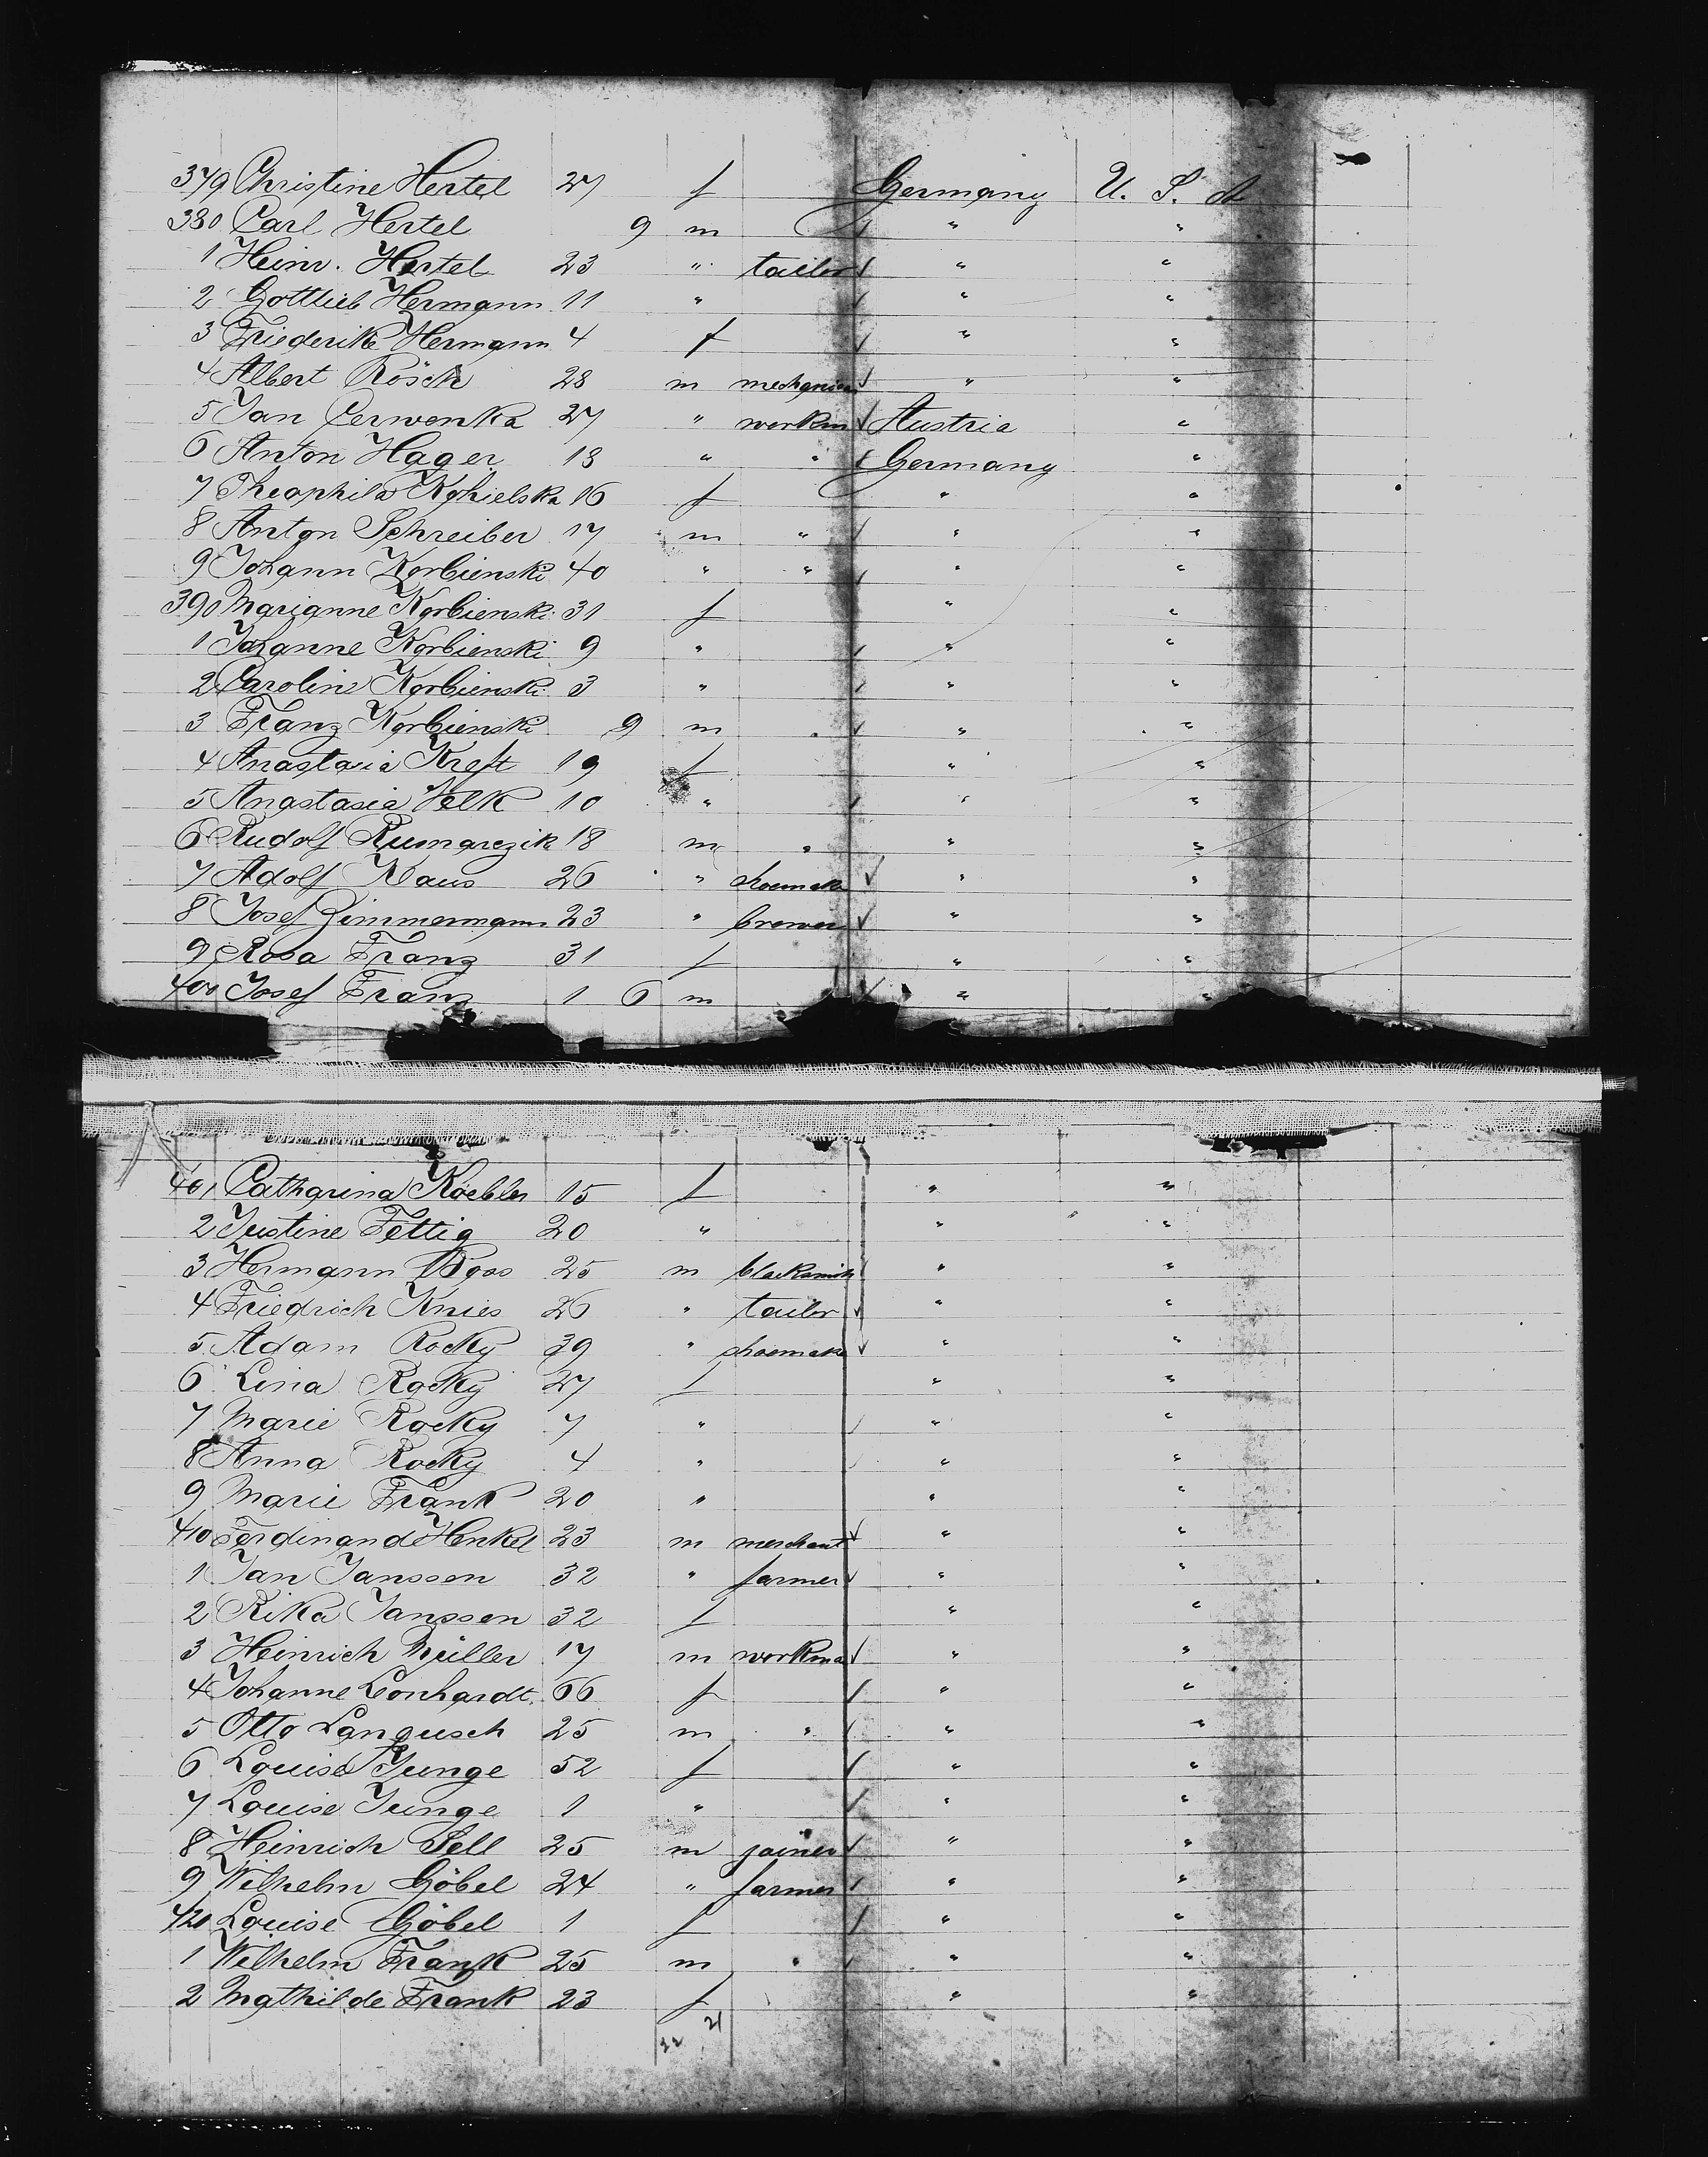 379 Christine Hertel 27 f Germany U. S. A
380 Carl Hertel 9 m " "
1 Heinr. Hertel 23 " tailor " "
2 Gottlieb Hermann 11 " " "
3 Friederike Hermann 4 f " "
4 Albert Rösch 28 m mechanican " "
5 Jan Cerwenka 27 " workm Austria "
6 Anton Hager 18 " " Germany "
7 Theophila 16 f " "
8 Anton Schreiber 17 m " " "
9 Johann Korbienski 40 " " " "
390 Marianne Korbienski 31 f " "
1 Johanne Korbienski 9 " " "
2 Caroline Korbienski 3 " " "
3 Franz Korbienski 9 m " "
4 Anastasia Kreft 19 f " "
5 Anastasia Velk 10 " " "
6 Rudolf Rumarczik 18 m " " "
7 Adolf Klaus 26 " shoemake " "
8 Josef Zimmermann 23 " brewer " "
9 Rosa Franz 31 f " "
400 Josef Franz 1 6 m " "
401 Catharina Koebler 15 f " "
2 Justine Fettig 20 " " "
3 Hermann Boos 25 m blacksmith " "
4 Friedrich Knies 26 " tailor " "
5 Adam Rocky 39 " shoemake " "
6 Lina Rocky 27 f " "
7 Marie Rocky 7 " " "
8 Anna Rocky 4 " " "
9 Marie Frank 20 " " "
410 Ferdinand Henkel 23 m merchant " "
1 Jan Janssen 32 " farmer " "
2 Rika Janssen 32 f " "
3 Heinrich Müller 17 m workma " "
4 Johanne Leonhardt 66 f " "
5 Otto Langusch 25 m " " "
6 Louise Junge 52 f " "
7 Louise Junge 1 " " "
8 Heinrich Sell 25 m joiner " "
9 Wilhelm Göbel 24 " farmer " "
420 Louise Göbel 1 f " "
1 Wilhelm Frank 25 m " " "
2 Mathilde Frank 23 f " "
22 21